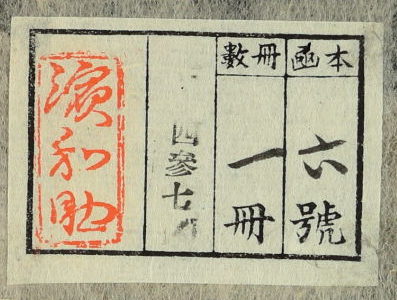 本函
六號
冊數
一冊
四參七
濱和助